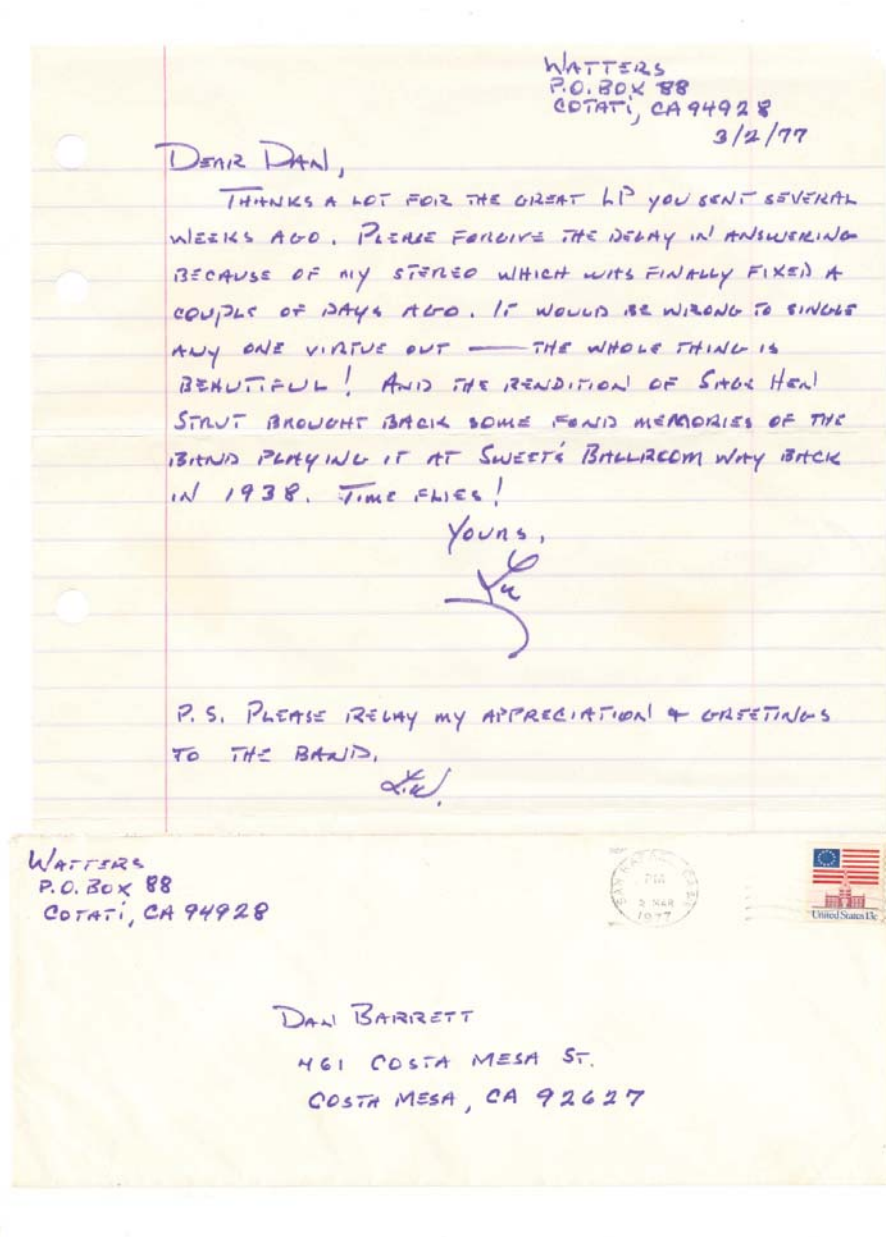 WATTERS
P.O. BOX 88
COTATI, CA 94928
3/2/77
DEAR DAN,
THANKS A LOT FOR THE GREAT LP YOU SENT SEVERAL
WEEKS AGO. PLEASE FORGIVE THE DELAY IN ANSWERING
BECAUSE OF MY STEREO WHICH WAS FINALLY FIXED A
COUPLE OF DAYS AGO. IT WOULD BE WRONG TO SINGLE
ANY ONE VIRTUE OUT — THE WHOLE THING IS
BEAUTIFUL! AND THE RENDITION OF SAGE HEN
STRUT BROUGHT BACK SOME FOND MEMORIES OF THE
BAND PLAYING IT AT SWEET'S BALLROOM WAY BACK
IN 1938. TIME FLIES!
YOURS,
Lu
P.S. PLEASE RELAY MY APPRECIATION & GREETINGS
TO THE BAND.
L.W.
WATTERS
P.O. BOX 88
COTATI, CA 94928
SAN RAFAEL CA
PM
2 MAR
1977
United States 13c
DAN BARRETT
461 COSTA MESA ST.
COSTA MESA, CA 92627